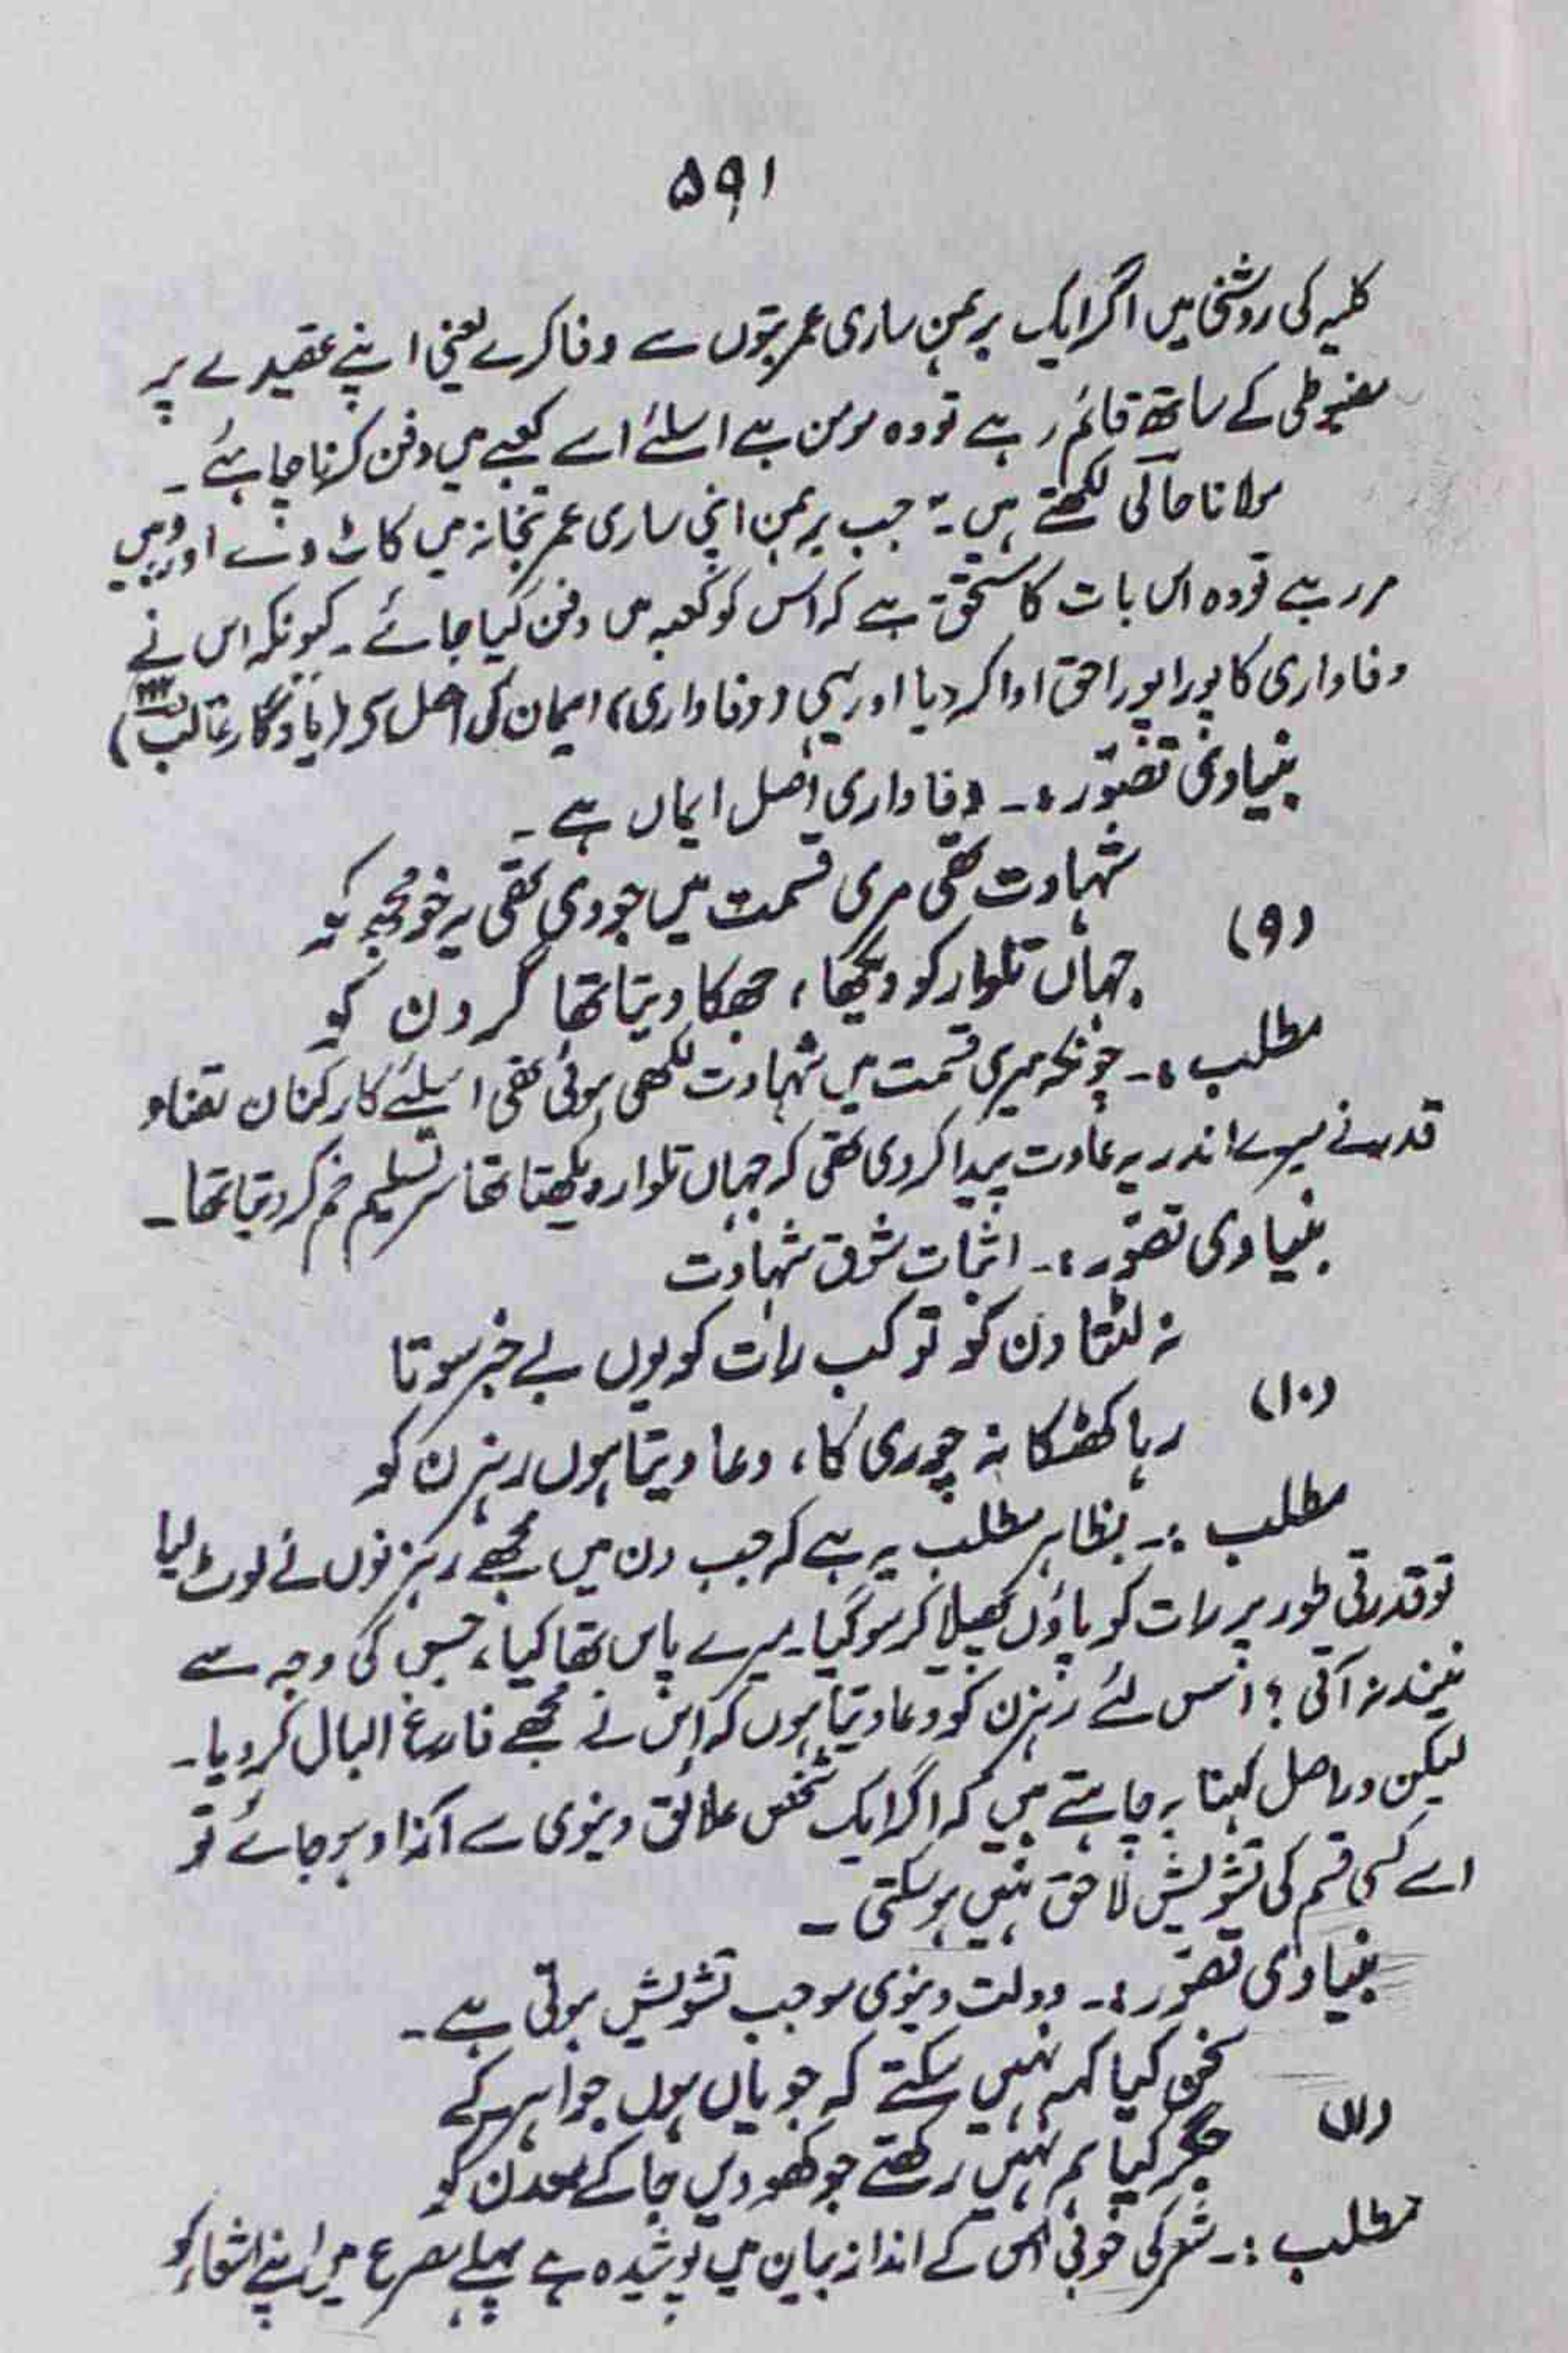 ۵۹۱
کلیہ کی روشنی میں اگر ایک برہمن ساری عمر بتوں سے وفا کرے یعنی اپنے عقیدے پر
مضبوطی کے ساتھ قائم رہے تو وہ مومن ہے اسلئے اسے کعبے میں دفن کرنا چاہئے ۔
مولانا حالی لکھتے ہیں ۔" جب برہمن اپنی ساری عمر بتخانہ میں کاٹ دے اور وہیں
مر رہے تو وہ اس بات کا مستحق ہے کہ اس کو کعبہ میں دفن کیا جائے ۔ کیونکہ اس نے
وفاداری کا پورا پورا حق ادا کر دیا اور یہی (وفاداری) ایمان کی اصل ہے (یادگار غالب)
بنیادی تصوّر :۔ وفاداری اصل ایماں ہے ۔
شہادت تھی مری قسمت میں جو دی تھی یہ خو مجھ کو
(۹)
جہاں تلوار کو دیکھا ، جھکا دیتا تھا گردن کو
مطلب :۔ چونکہ میری قسمت میں شہادت لکھی ہوئی تھی اسلئے کارکنان قضاء و
قدر نے میرے اندر یہ عادت پیدا کر دی تھی کہ جہاں تلوار دیکھتا تھا سر تسلیم خم کر دیتا تھا ۔
بنیادی تصوّر :۔ اثبات شوق شہادت
نہ لٹتا دن کو تو کب رات کو یوں بے خبر سوتا
(۱۰)
رہا کھٹکا نہ چوری کا ، دعا دیتا ہوں رہزن کو
مطلب :۔ بظاہر مطلب یہ ہے کہ جب دن میں مجھے رہزنوں نے لوٹ لیا
تو قدرتی طور پر رات کو پاؤں پھیلا کر سو گیا ۔ میرے پاس تھا کیا ، جس کی وجہ سے
نیند نہ آتی ؟ اس لئے رہزن کو دعا دیتا ہوں کہ اس نے مجھے فارغ البال کر دیا ۔
لیکن دراصل کہنا یہ چاہتے ہیں کہ اگر ایک شخص علائق دنیوی سے آزاد ہو جائے تو
اسے کسی قسم کی تشویش لاحق نہیں ہو سکتی ۔
بنیادی تصوّر :۔ دولت دنیوی موجب تشویش ہوتی ہے ۔
سخن کیا کہہ نہیں سکتے کہ جویاں ہوں جواہر کے
(۱۱)
جگر کیا ہم نہیں رکھتے جو کھودیں جا کے معدن کو
مطلب :۔ شعر کی خوبی اس کے انداز بیان میں پوشیدہ ہے پہلے مصرع میں اپنے اشعار کو